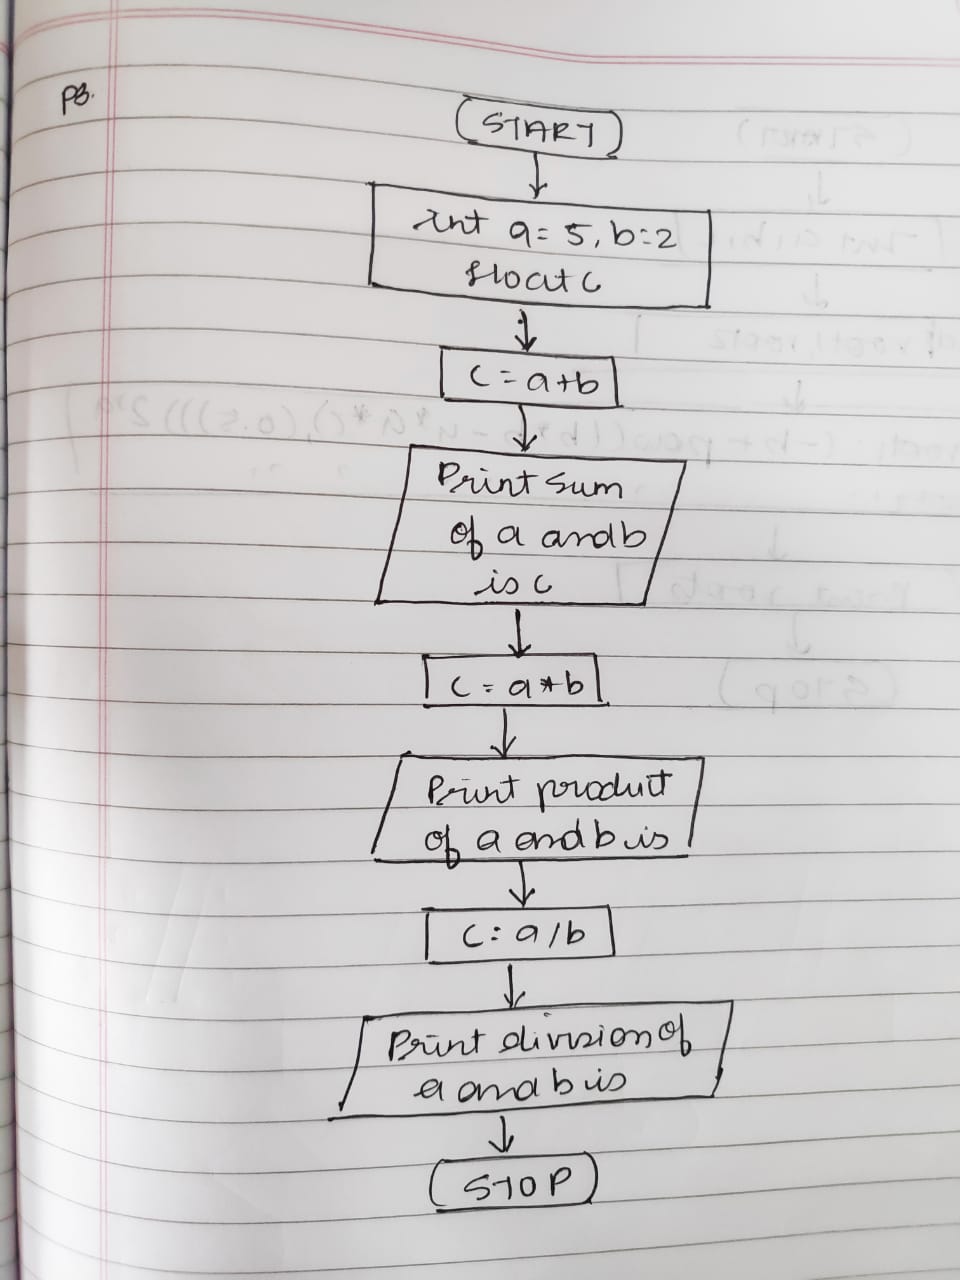 P3.
START
int a = 5, b = 2
float c
c = a+b
Print sum
of a and b
is c
c = a*b
Print product
of a and b is
c = a/b
Print division of
a and b is
STOP